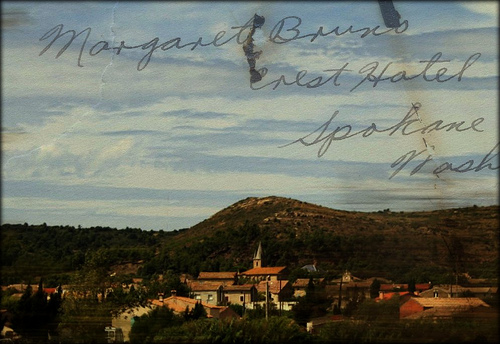 Margaret Bruno
Crest Hotel
Spokane
Wash